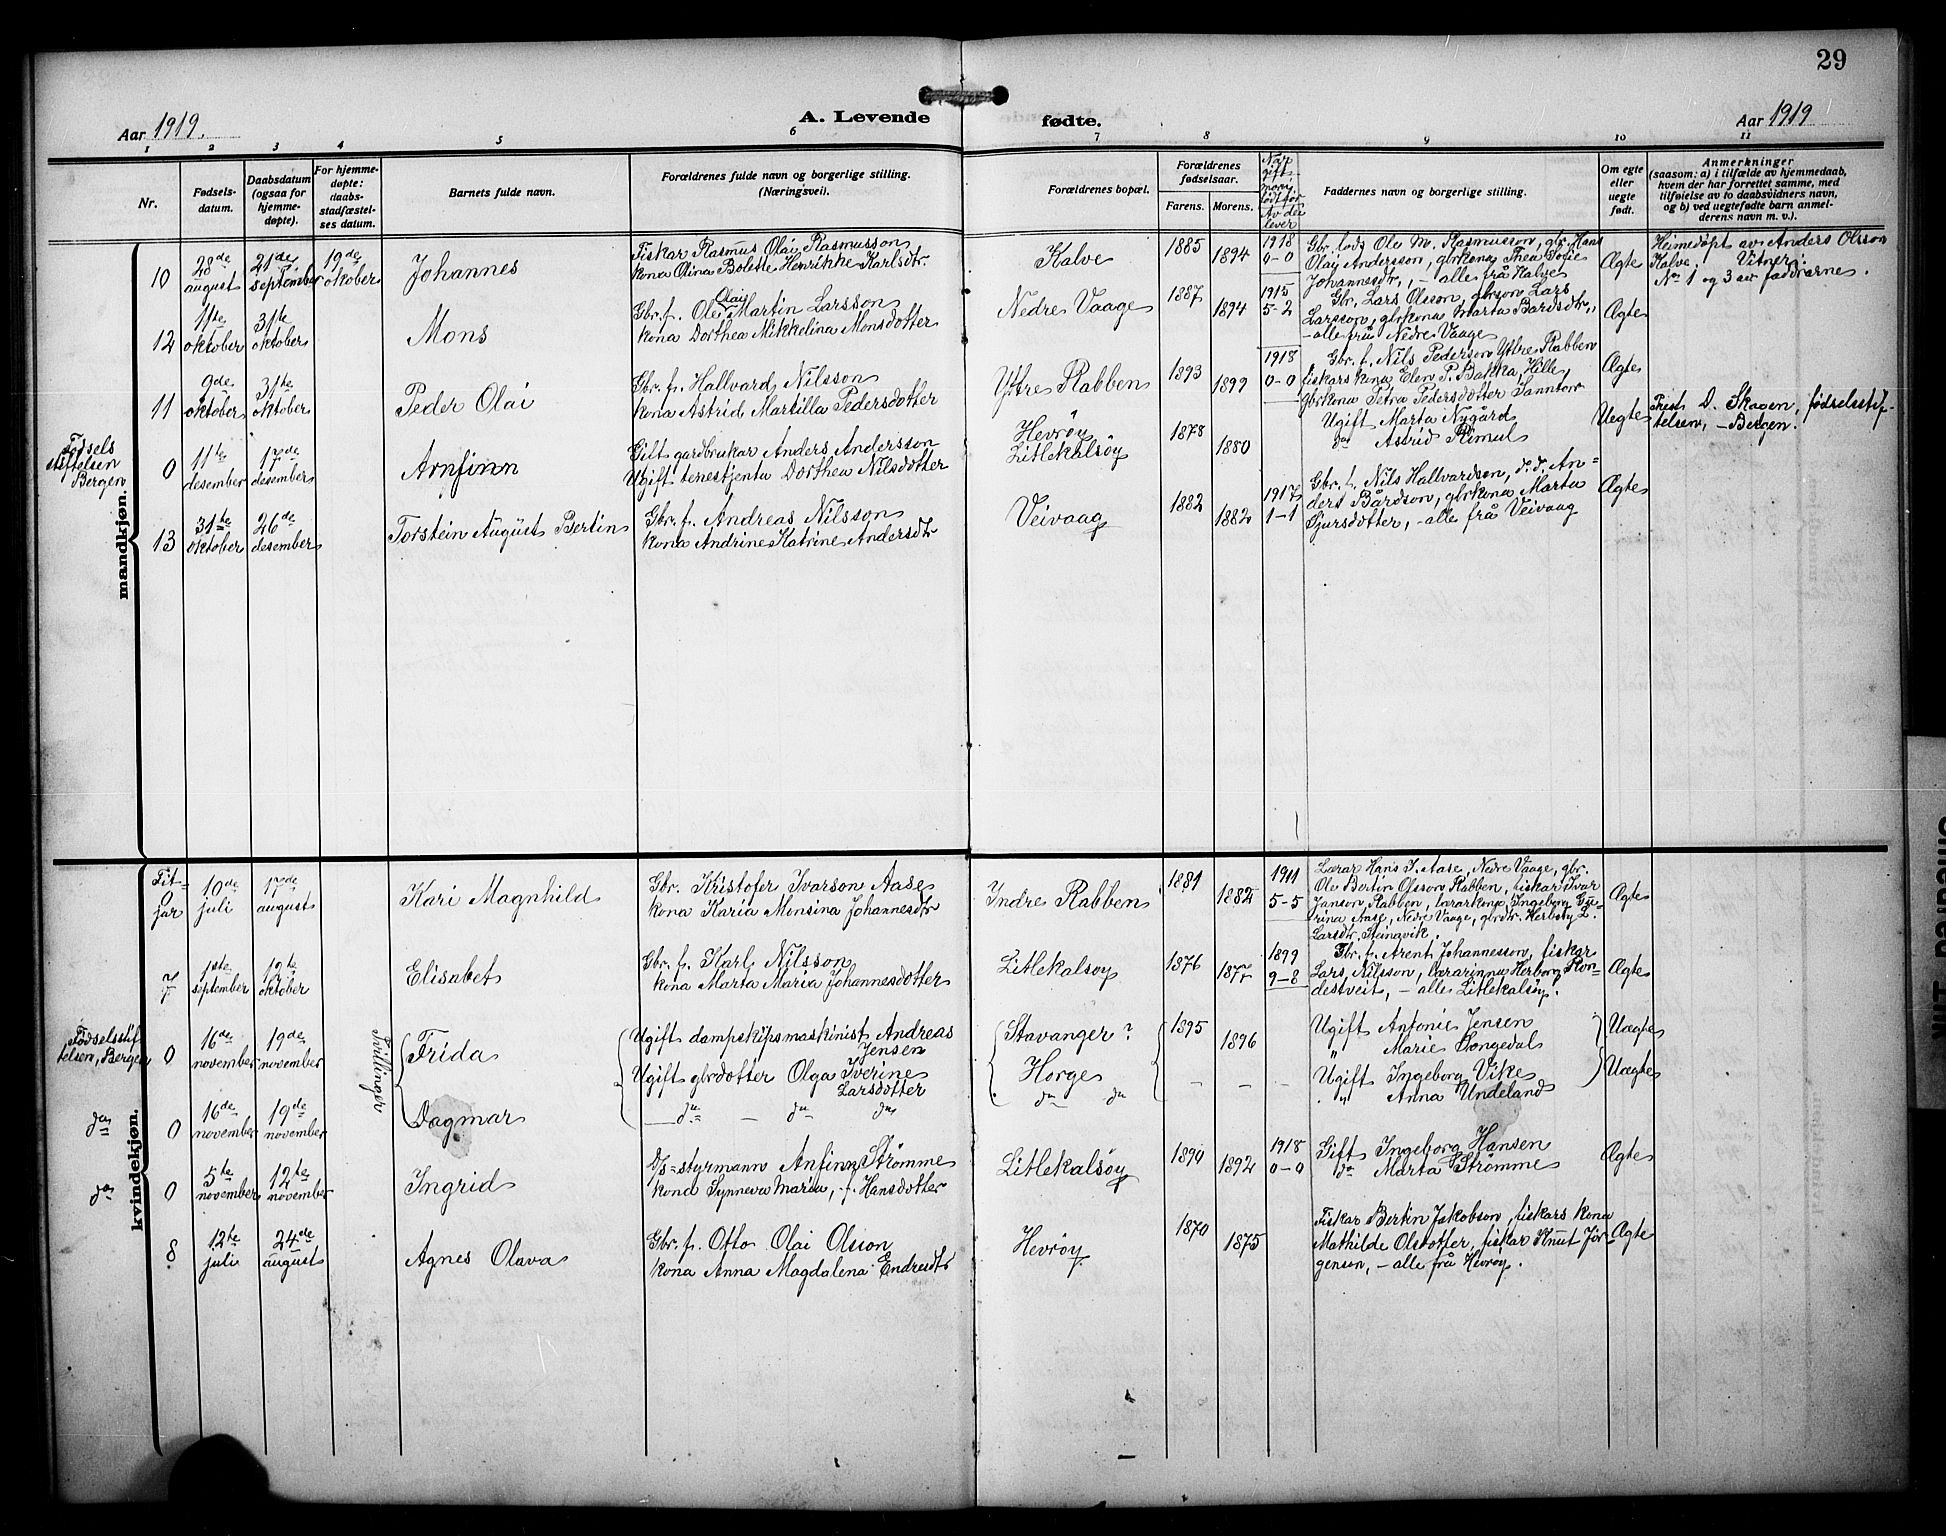 29
Aar 1919.
A. Levende fødte.
Aar 1919
1 2 3 4 5 6 7 8 9 10 11
Nr.
Fødsels-
datum.
Daabsdatum
(ogsaa for
hjemme-
døpte).
For hjemme-
døpte:
daabs-
stadfæstel-
ses datum.
Barnets fulde navn.
Forældrenes fulde navn og borgerlige stilling.
(Næringsvei).
Forældrenes bopæl.
Forældrenes
fødselsaar.
Farens. Morens.
Når
gift
Av dei
lever
Faddernes navn og borgerlige stilling.
Om egte
eller
uegte
født.
Anmerkninger
(saasom: a) i tilfælde av hjemmedaab,
hvem der har forrettet samme, med
tilføielse av to daabsvidners navn,
og b) ved uegtefødte barn anmel-
derens navn m. v.).
mandkjøn.
10
28de
august
21de
september
19de
oktober
Johannes
Fiskar Rasmus Olai Rasmusson
kona Olina Bolette Henrikke Karlsdtr.
Kalve
1885
1894
1918
0-0
Gbr. lods Ole M. Rasmusson, gbr. Hans
Olay Andersson, gbrkona Thea Sofie
Johannesdtr, - alle frå Kalve
Ægte
Heimedøpt av Anders Olsson
Kalve. Vitner:
No 1 og 3 av faddrarne.
12
11te
oktober
31te
oktober
Mons
Olai
Gbr. f. Ole Martin Larsson
kona Dorthea Mikkelina Monsdotter
Nedre Vaage
1887
1894
1915
5-2
Gbr. Lars Olsson, gbrson Lars
Larsson, gbrkona Marta Bardsdtr,
- alle frå Nedre Vaage
Ægte
11
9de
oktober
31te
oktober
Peder Olai
Gbr. f. Hallvard Nilsson
kona Astrid Martilla Pedersdotter
Ytre Rabben
1893
1899
1918
0-0
Gbr. f. Nils Pederson Ytre Rabben
fiskars kona Elen P. Bakka, Hille,
gbrkona Petra Pedersdotter Sanntorv
Ægte
Fødsels
stiftelsen
Bergen
0
11te
desember
17de
desember
Arnfinn
Gift gardbrukar Anders Andersson
Ugift tenestjenta Dorthea Nilsdotter
Hevrøy
Litlekalsøy
1878
1880
Ugift Marta Nygård
do Astrid Rimul
Uegte
Prest D. Skagen, fødselsstif-
telsen, - Bergen.
13
31te
oktober
26de
desember
Torstein August Bertin
Gbr. f. Andreas Nilsson
kona Andrine Katrine Andersdtr
Veivaag
1882
1882
1917
1-1
Gbr. f. Nils Hallvardson, d.d. An=
ders Bårdson, gbrkona Marta
Sjursdotter, - alle frå Veivaag
Ægte
kvindekjøn.
Fit-
jar
10de
juli
17de
august
Kari Magnhild
Gbr. Kristofer Ivarson Aase
kona Karia Monsina Johannesdtr
Indre Rabben
1881
1882
1911
5-5
Lærar Hans J. Aase, Nedre Vaage, gbr.
Ole Bertin Olsson Rabben, fiskar Ivar
Janson Rabben, lærarkona Ingeborg Gu-
rina Aase, Nedre Vaage, gbrdtr. Herborg L.
Larsdtr, Steinavik.
Ægte
7
1ste
september
12te
oktober
Elisabet
Gbr. f. Karl Nilsson
kona Marta Maria Johannesdotter
Litlekalsøy
1876
1877
1899
9-8
Gbr. f. Arent Johannesson, fiskar
Lars Nilsson, lærarinna Herborg Ron-
destveit, - alle Litlekalsøy.
Ægte
Fødselsstif
telsen, Bergen
0
16de
november
19de
november
Tvillinger
Frida
Ugift dampskipsmaskinist Andreas
Jensen
Ugift gbrdotter Olga Iverine
Larsdotter
Stavanger?
Horge
1895
1896
Ugift Antonie Jensen
" Marie Songedal
Uægte
do
0
16de
november
19de
november
Dagmar
do - do do
do do
- - -
Ugift Ingeborg Vike
" Anna Undeland
Uægte
do
0
5te
november
12te
november
Ingrid
D/S=styrmann Anfinn Strømme
kona Synneva Maria, f. Hansdotter
Litlekalsøy
1890
1892
1918
0-0
Gift Ingeborg Hansen
do Marta Strømme
Ægte
8
12te
juli
24de
august
Agnes Olava
Gbr. f. Otto Olai Olsson
kona Anna Magdalena Endresdtr
Hevrøy
1870
1875
Fiskar Bertin Jakobson, fiskars kona
Mathilde Olsdotter, fiskar Knut Jør-
gensen, - alle frå Hevrøy.
Ægte